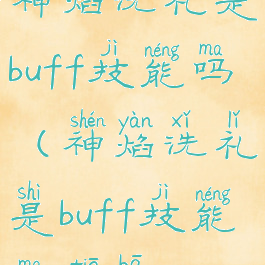 神焰洗礼是
jì néng ma
buff技能吗
shén yàn xǐ lǐ
（神焰洗礼
shì jì néng
是buff技能